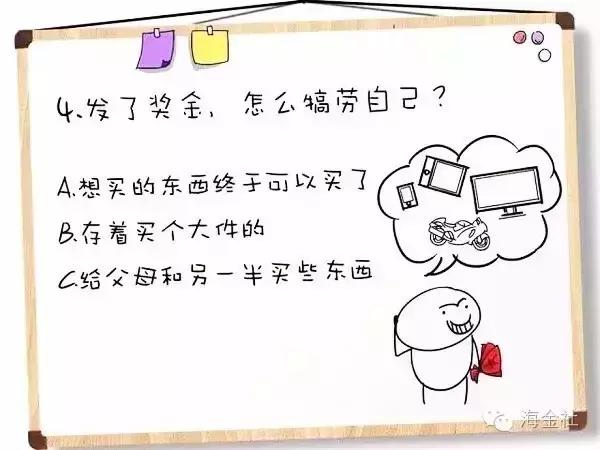 4.发了奖金，怎么犒劳自己？
A.想买的东西终于可以买了
B.存着买个大件的
C.给父母和另一半买些东西
海金社